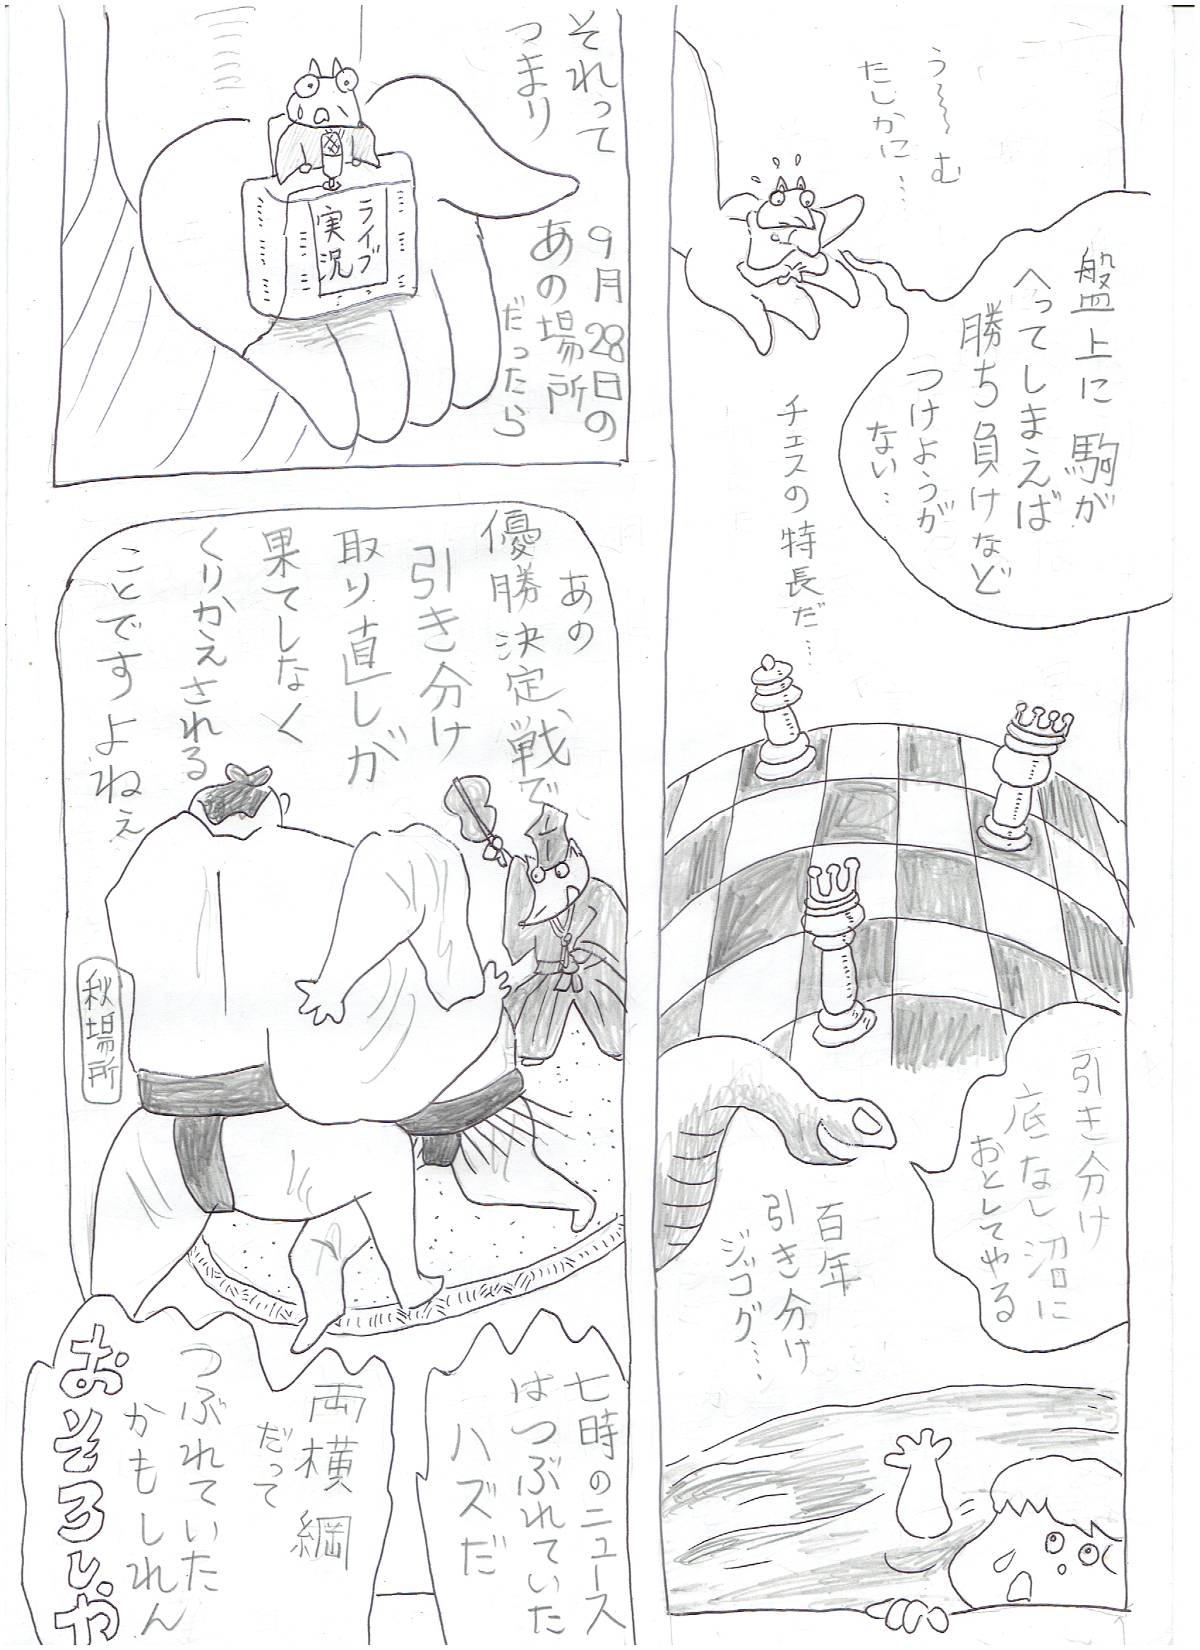 う~~む
たしかに…
盤上に駒が
へってしまえば
勝ち負けなど
つけようが
ない…
チェスの特長だ…
引き分け
底なし沼に
おとしてやる
百年
引き分け
ジッコグ…
それって
つまり
ライブ
実況
9月28日の
あの場所
だったら
あの
優勝決定戦で、
引き分け
取り直しが
果てしなく
くりかえされる
ことですよねぇ
秋場所
七時のニュース
はつぶれていた
ハズだ
両横綱
だって
つぶれていた
かもしれん
おそろしや